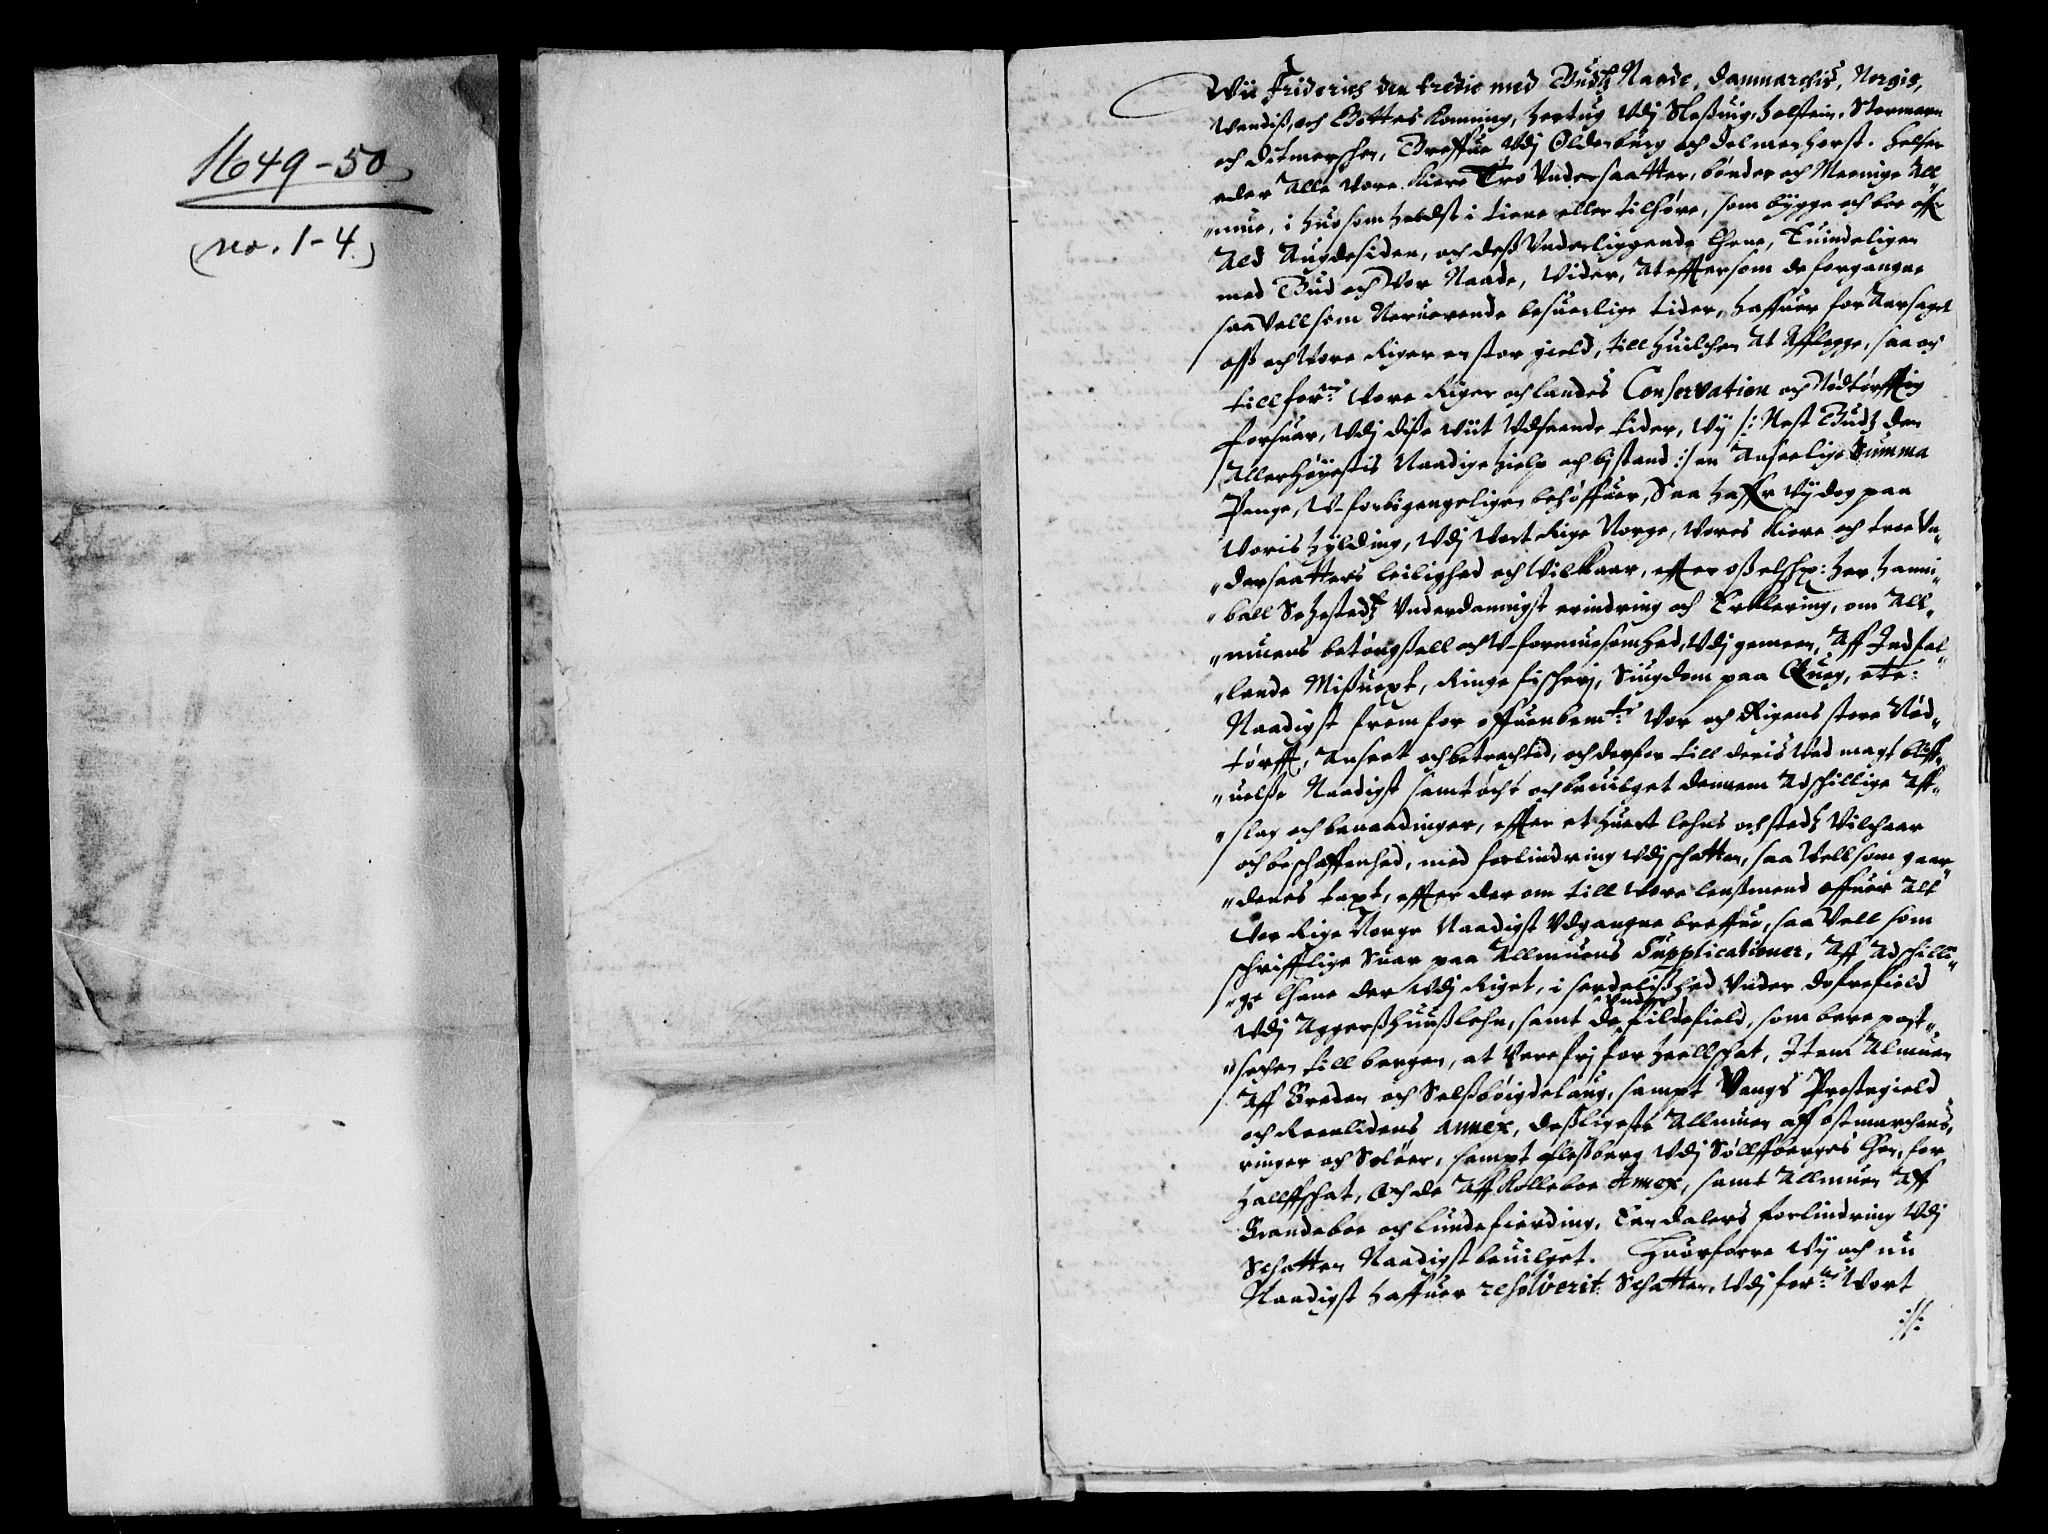 1649-50
(no. 1-4.)
Wii Friderich den tredie med Gudtz Naade, Danmarchis, Norgis,
Wendis, och Gottes Konning, Hertug Vdj Sleßuig, Holstein, Stormarn
och Ditmerschen, Greffue Vdj Oldenburg och Delmenhorst. Helser
eder Alle Vore Kiere Tro Vndersaatter, bønder och Meenige All„
„mue, i huo som helst i tiene eller tilhøre, som bygge och boe offr
Ald Augdesiden, och deß Vnderliggende Lhene, Euindeligen
med Gud och Vor Naade, Vider, At effter som de forgangne
saa Vell som Neruerende besuerlige tider, haffuer foraarsaget
oß och Vore Riger en stor gield, till huilchen At Afflegge, saa och
till forne: Vore Riger och landes Conservation och Nødtørfftig
forsuar, Vdj diße Viit Vdseende tider, Wy /: Nest Gudtz den
Allerhøyestis Naadige hielp och bistand :/ en Anseelige Summa
Penge, V-forbigengeligen behøffuer, Saa haffr Wy dog paa
Voris hylding, Vdj Vort Rige Norge, Vores Kiere och troe Vn„
„dersaatters leilighed och Vilkaar, effter oß elskx: Her Hanni„
„ball Sehestedtz Vnderdanigst erindring och Erklering, om All„
„muens betøngßell och V-formuesomhed, Vdj gemeen, Aff Indfal„
„lende Mißuext, Ringe fischerj, Siugdom paa Queg, etc:
Naadigst frem for offuenbemte: Vor och Rigens store Nød„
tørfft, Anseet och betrachtid, och derfor till deris Ved magt bliff„
„uelße Naadigst samtøcht och beuilget dennem Adschillige Aff„
„slag och benaadinger, effter et huert lehns och stedtz Vilchaar
och beschaffenhed, med forlindring Vdj schatten, saa Vell som gaar„
„denes taxt, effter der om till Vore lenßmend offuer Alt
Vor Rige Norge Naadigst Vdgangne breffue, saa Vell som
schrifftlige Suar paa Allmuens Supplicationer, Aff Adschilli„
„ge Lhene der Vdj Riget, i serdelißhed Vnder Dofrefield
Vdj Aggerßhuuß lehn, samt de Vnder fildefield, som bere post„
„sechen till bergen, at Vere frj for heellschat, Item Almuen
Aff Breden och Selßbøigdelaug, sampt Vangs Prestegield
och Reenlidens Annex, deßligeste Allmuen aff Østmarchens,
ringer och Soløer, sampt Fleßberg Vdj Sølffberges Lhen, for
halffschat, Och de Aff Rolleboe Annex, samt Allmuen Aff
Grandeboe och Lundefierding, Een dalers forlindring Vdj
Schatten Naadigst beuilget. Huorforre Wy och nu
Naadigst haffuer resolverit Schatten, Vdj forne: Vort
:/: